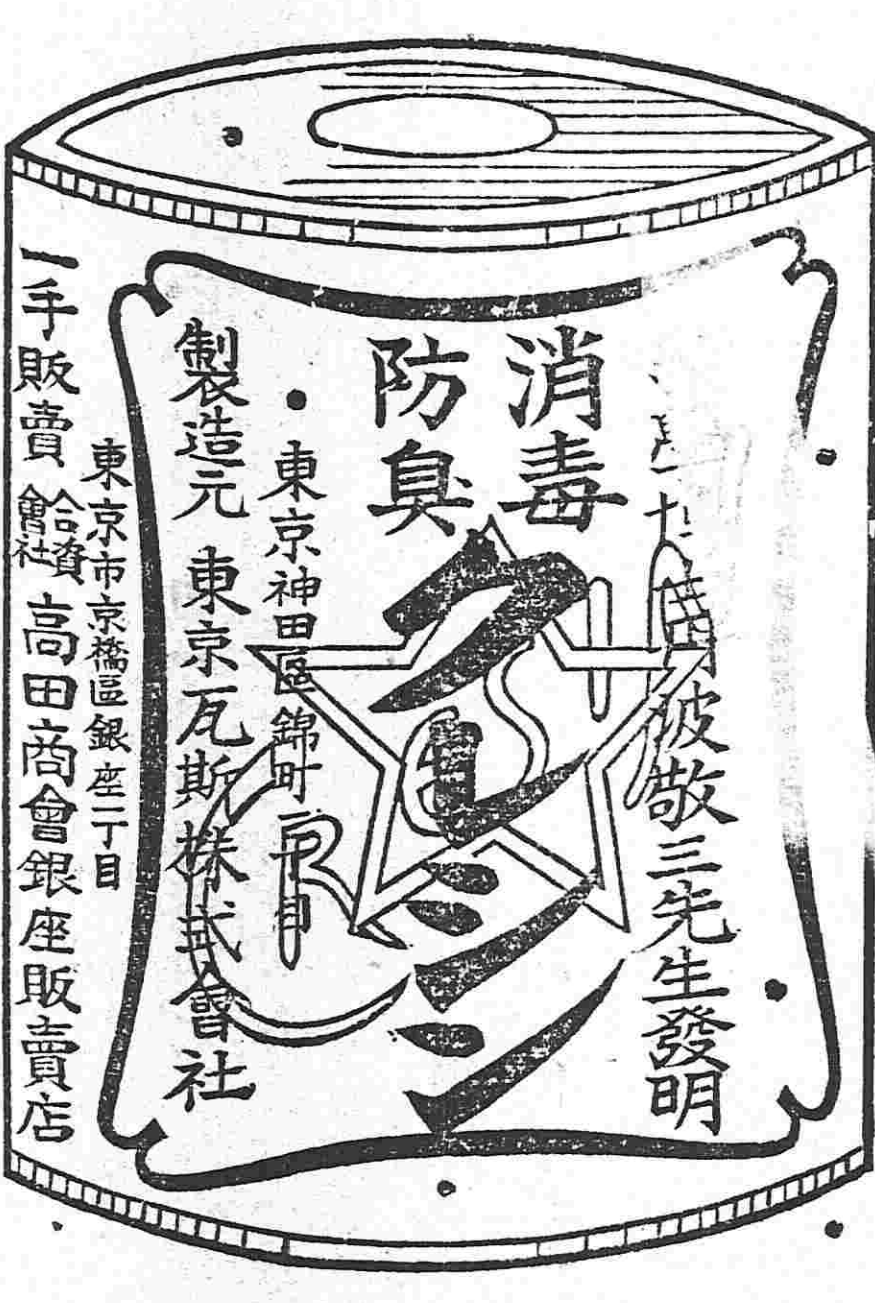 波敬三先生發明
消毒
防臭
クレシン
東京神田區錦町三丁目
製造元 東京瓦斯株式會社
東京市京橋區銀座二丁目
一手販賣 合資會社 高田商會銀座販賣店